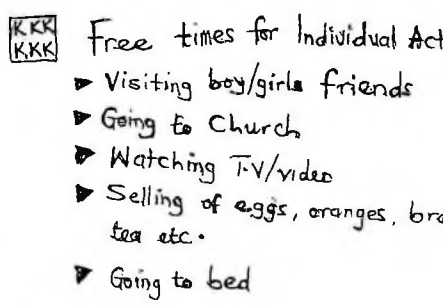 K KK Free times for Individual Act
K.KK
► Visiting boy/girls friends
► Going to Church
► Watching T.V/video
► Selling of eggs, oranges, bra
tea etc.
► Going to bed